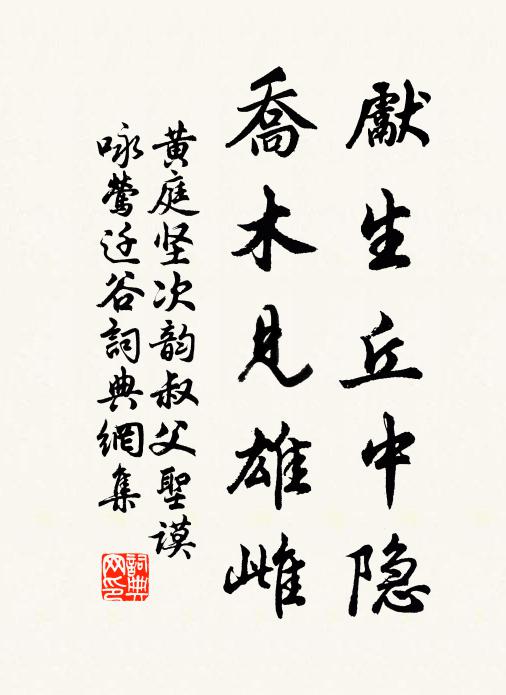 獻生丘中隐
喬木見雄雌
黄庭坚次韵叔父聖謨
咏鶯迁谷詞典網集
詞典
网印